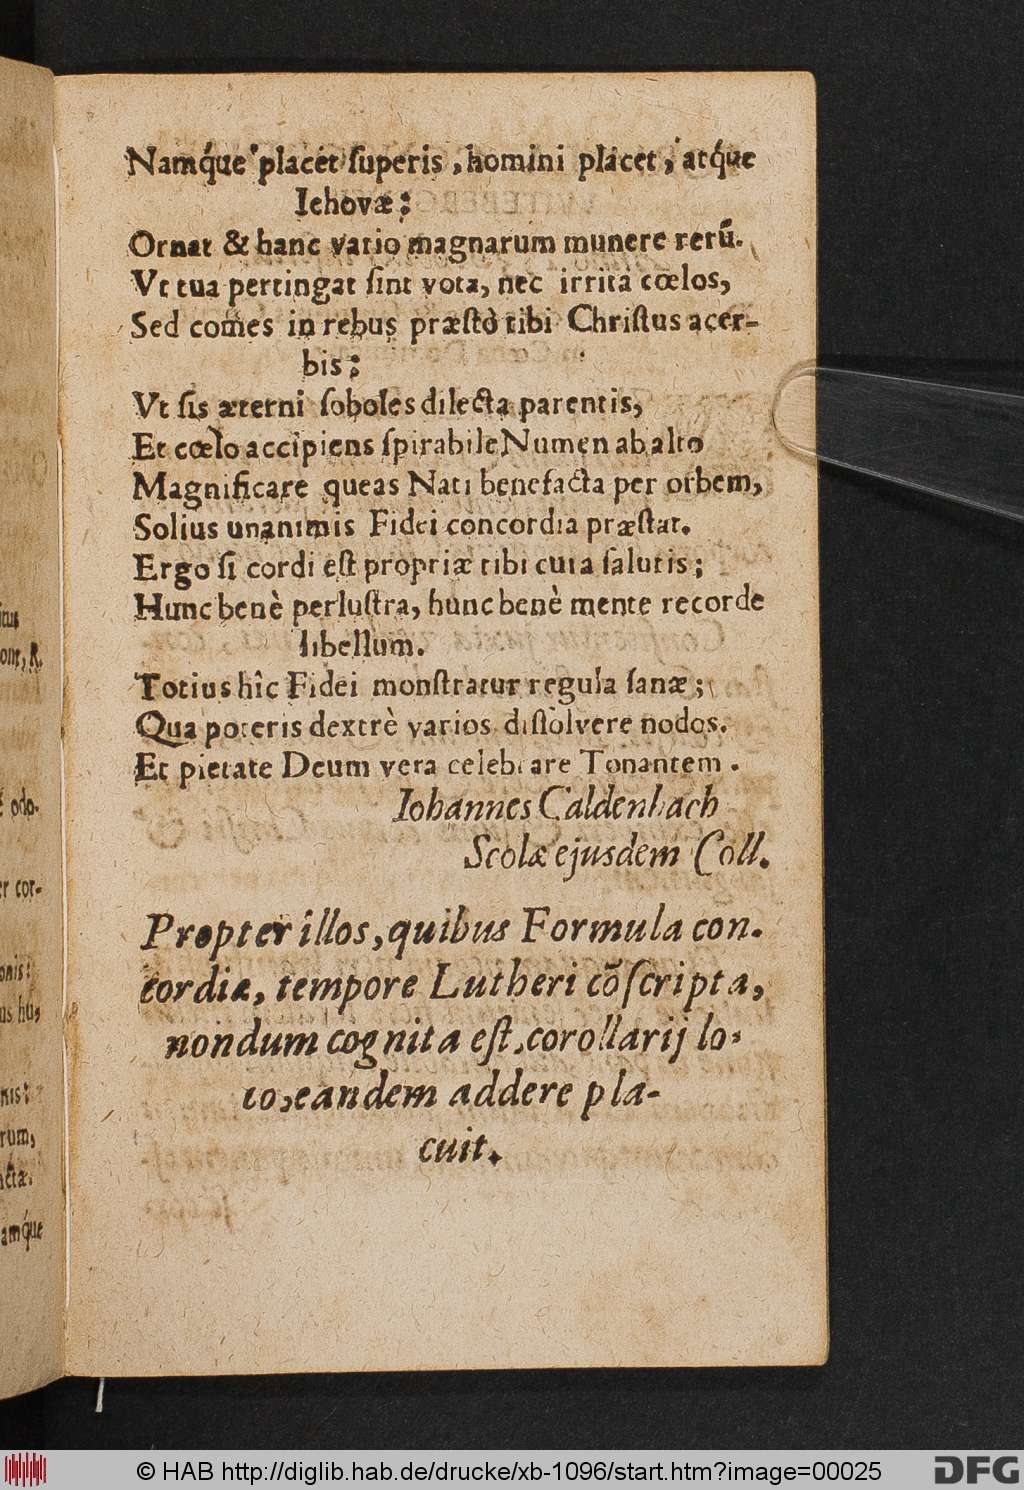 Namq́ue placet ſuperis, homini placet, atq́ue
Iehovæ;
Ornat & hanc vario magnarum munere rerũ.
Vt tua pertingat ſint vota, nec irrita cœlos,
Sed comes in rebus præſtò tibi Chriſtus acer-
bis;
Vt ſis æterni ſoboles dilecta parentis,
Et cœlo accipiens ſpirabile Numen ab alto
Magnificare queas Nati benefacta per orbem,
Solius unanimis Fidei concordia præſtat.
Ergo ſi cordi eſt propriæ tibi cura ſalutis;
Hunc benè perluſtra, hunc benè mente recorde
libellum.
Totius hîc Fidei monſtratur regula ſanæ;
Qua poteris dextrè varios diſſolvere nodos.
Et pietate Deum vera celebrare Tonantem.
Iohannes Caldenbach
Scolæ ejusdem Coll.
Propter illos, quibus Formula con.
cordiæ, tempore Lutheri cõſcripta,
nondum cognita eſt, corollarij lo-
co, eandem addere pla-
cuit.
one, R.
odo.
er cor-
onis:
us hu,
nis:
rum,
ctæ.
amq́ue
© HAB http://diglib.hab.de/drucke/xb-1096/start.htm?image=00025
DFG